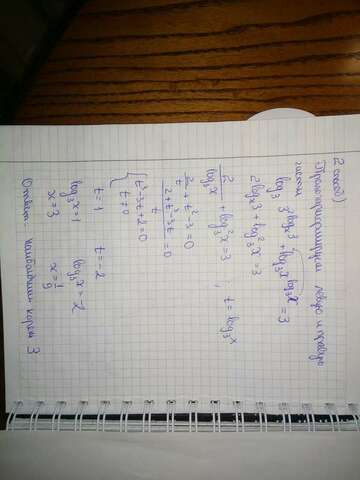 2 способ)
Прологарифмируем левую и правую
части
log₃ 3^(2logₓ3) + log₃ x^(log₃x) = 3
2logₓ3 + log₃²x = 3
2/log₃x + log₃²x = 3 ; t = log₃x
2/t + t² - 3 = 0
(2 + t³ - 3t)/t = 0
{ t³ - 3t + 2 = 0
t ≠ 0
t = 1 t = -2
log₃x = 1 log₃x = -2
x = 3 x = 1/9
Ответ: наибольший корень 3